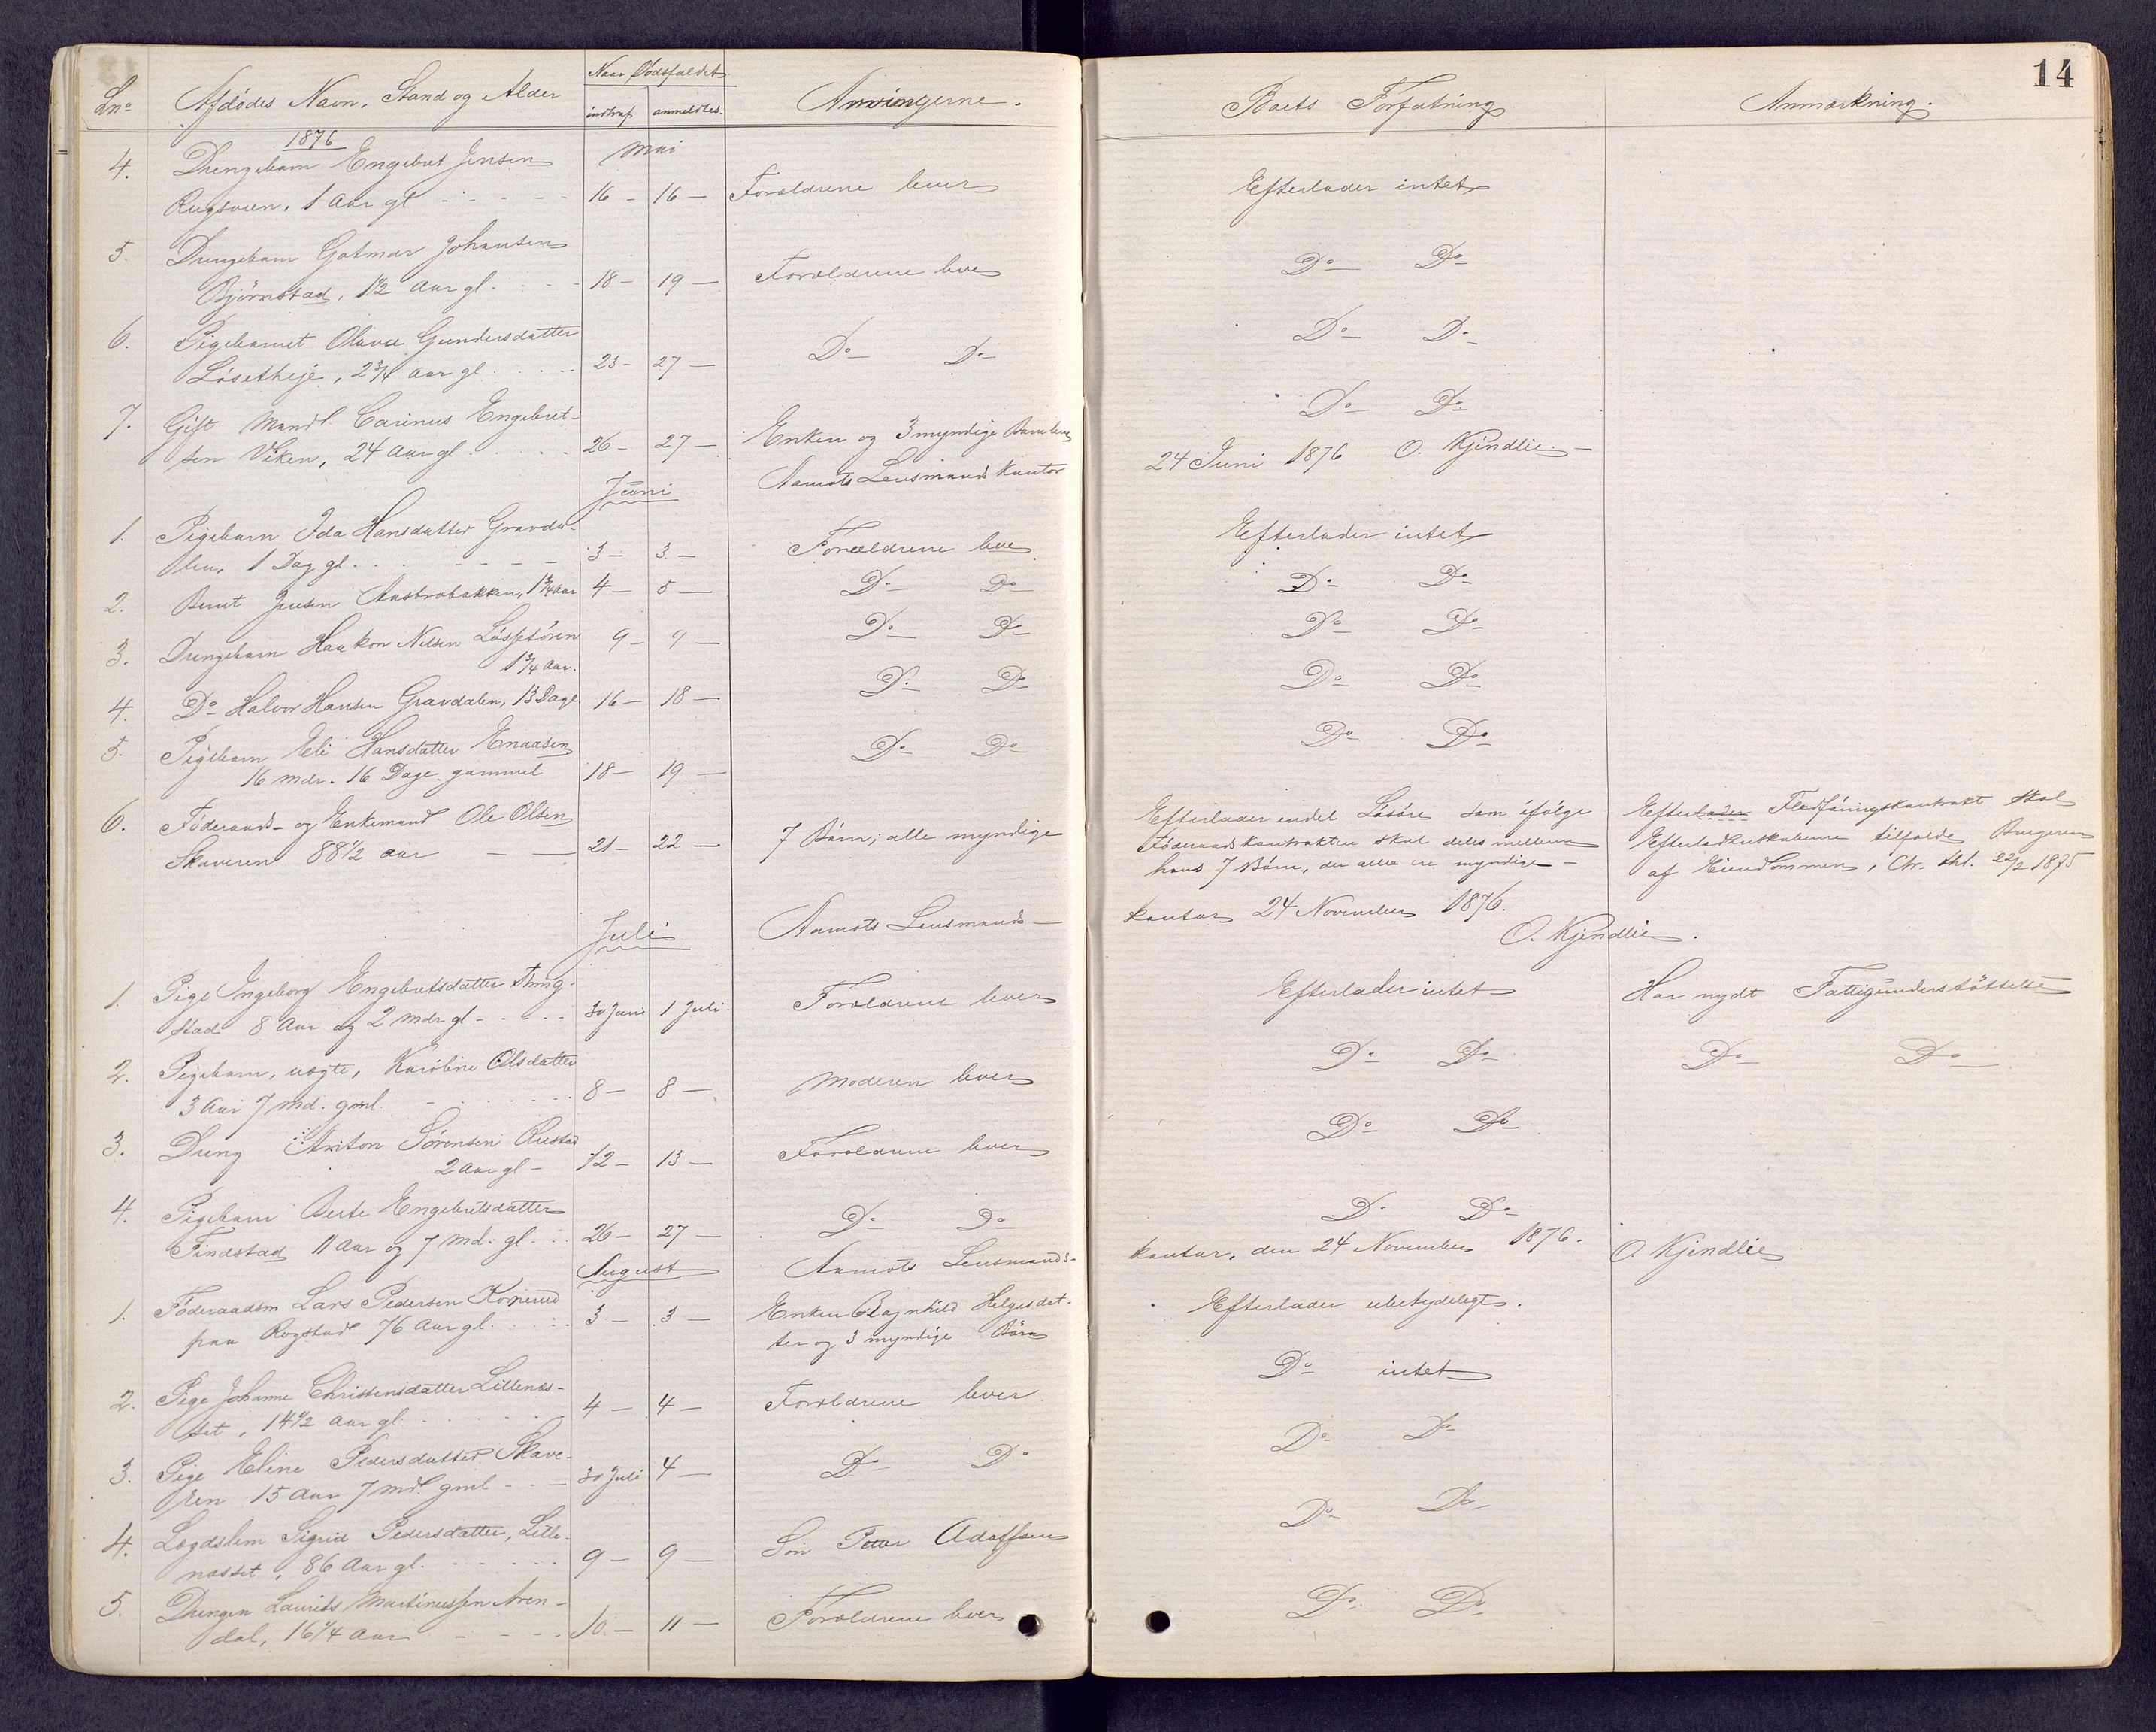 14
Lno Afdødes Navn, Stand og Alder Naar Dødsfaldet indtraf anmeldtes. Arvingerne. Boets Forfatning Anmærkning.
1876
Mai
4. Drengebarn Engebret Jensen
Rugsveen, 1 Aar gl 16 - 16 - Forældrene lever Efterlader intet
5. Drengebarn Gotmar Johansen
Bjørnstad, 1½ Aar gl. 18 - 19 - Forældrene lever Do Do
6. Pigebarnet Olava Gundersdatter
Løsetheje, 2¾ Aar gl. 23 - 27 - Do Do Do Do
7. Gift Mand Carinus Engebret-
sen Viken, 24 Aar gl 26 - 27 - Enken og 3 myndige Do Do
Juni Aamots Lensmands Kontor 24 Juni 1876 O. Kjendlie
1. Pigebarn Ida Hansdatter Gravda-
len, 1 Dag gl. 3 - 3 - Forældrene lever Efterlader intet
2. Bernt Jensen Austrobakken, 1¾ Aar 4 - 5 - Do Do Do Do
3. Drengebarn Haakon Nilsen Løssetøren 9 - 9 - Do Do Do Do
1¾ Aar.
4. Do Halvor Hansen Gravdalen, 13 Dage 16 - 18 - Do Do Do Do
5. Pigebarn Eli Hansdatter Enaasen
16 Mdr. 16 Dage gammel 18 - 19 - Do Do Do Do
6. Føderaads- og Enkemand Ole Olsen
Skaveren 88½ aar 21 - 22 - 7 Børn, alle myndige
Efterlader endel Løsøre som ifølge
Føderaadskontrakten skal deles mellem
hans 7 Børn, der alle ere myndige -
Efterlader Fledføringskontrakt skal
Efterladenskaberne tilfalde Brugeren
af Eiendommen, Ctr. thl. 22/2 1875
Juli Aamots Lensmands- kontor 24 November 1876.
O. Kjendlie.
1. Pige Ingeborg Engebretsdatter Thing-
stad 8 Aar og 2 Mdr gl 30 Juni 1 Juli Forældrene lever Efterlader intet Har nydt Fattigunderstøttelse
2. Pigebarn, uægte, Karoline Olsdatter
3 Aar 7 Md. gml. 8 - 8 - Moderen lever Do Do Do Do
3. Dreng Anton Sørensen Rustad
2 Aar gl - 12 - 13 - Forældrene lever Do Do
4. Pigebarn Berte Engebretsdatter
Findstad 11 Aar og 7 Md. gl. 26 - 27 - Do Do Do Do
August Aamots Lensmands- kontor, den 24 November 1876. O. Kjendlie
1. Føderaadsm Lars Pedersen Kopperud
paa Rogstad 76 Aar gl. 3 - 3 - Enken Ragnhild Helgesdat-
ter og 3 myndige Børn Efterlader ubetydeligt.
2. Pige Johanne Christensdatter Lillenæs-
set, 14½ Aar gl. 4 - 4 - Forældrene lever Do intet
3. Pige Eline Pedersdatter Skave-
ren 15 Aar 7 Md. gml 30 Juli 4 - Do Do Do Do
4. Lægdslem Sigrid Pedersdatter, Lille-
næsset, 86 Aar gl. 9 - 9 - Søn Peter Adolfsen Do Do
5. Drengen Laurits Martinussen Aren-
dal, 16¼ Aar 10. - 11 - Forældrene lever Do Do